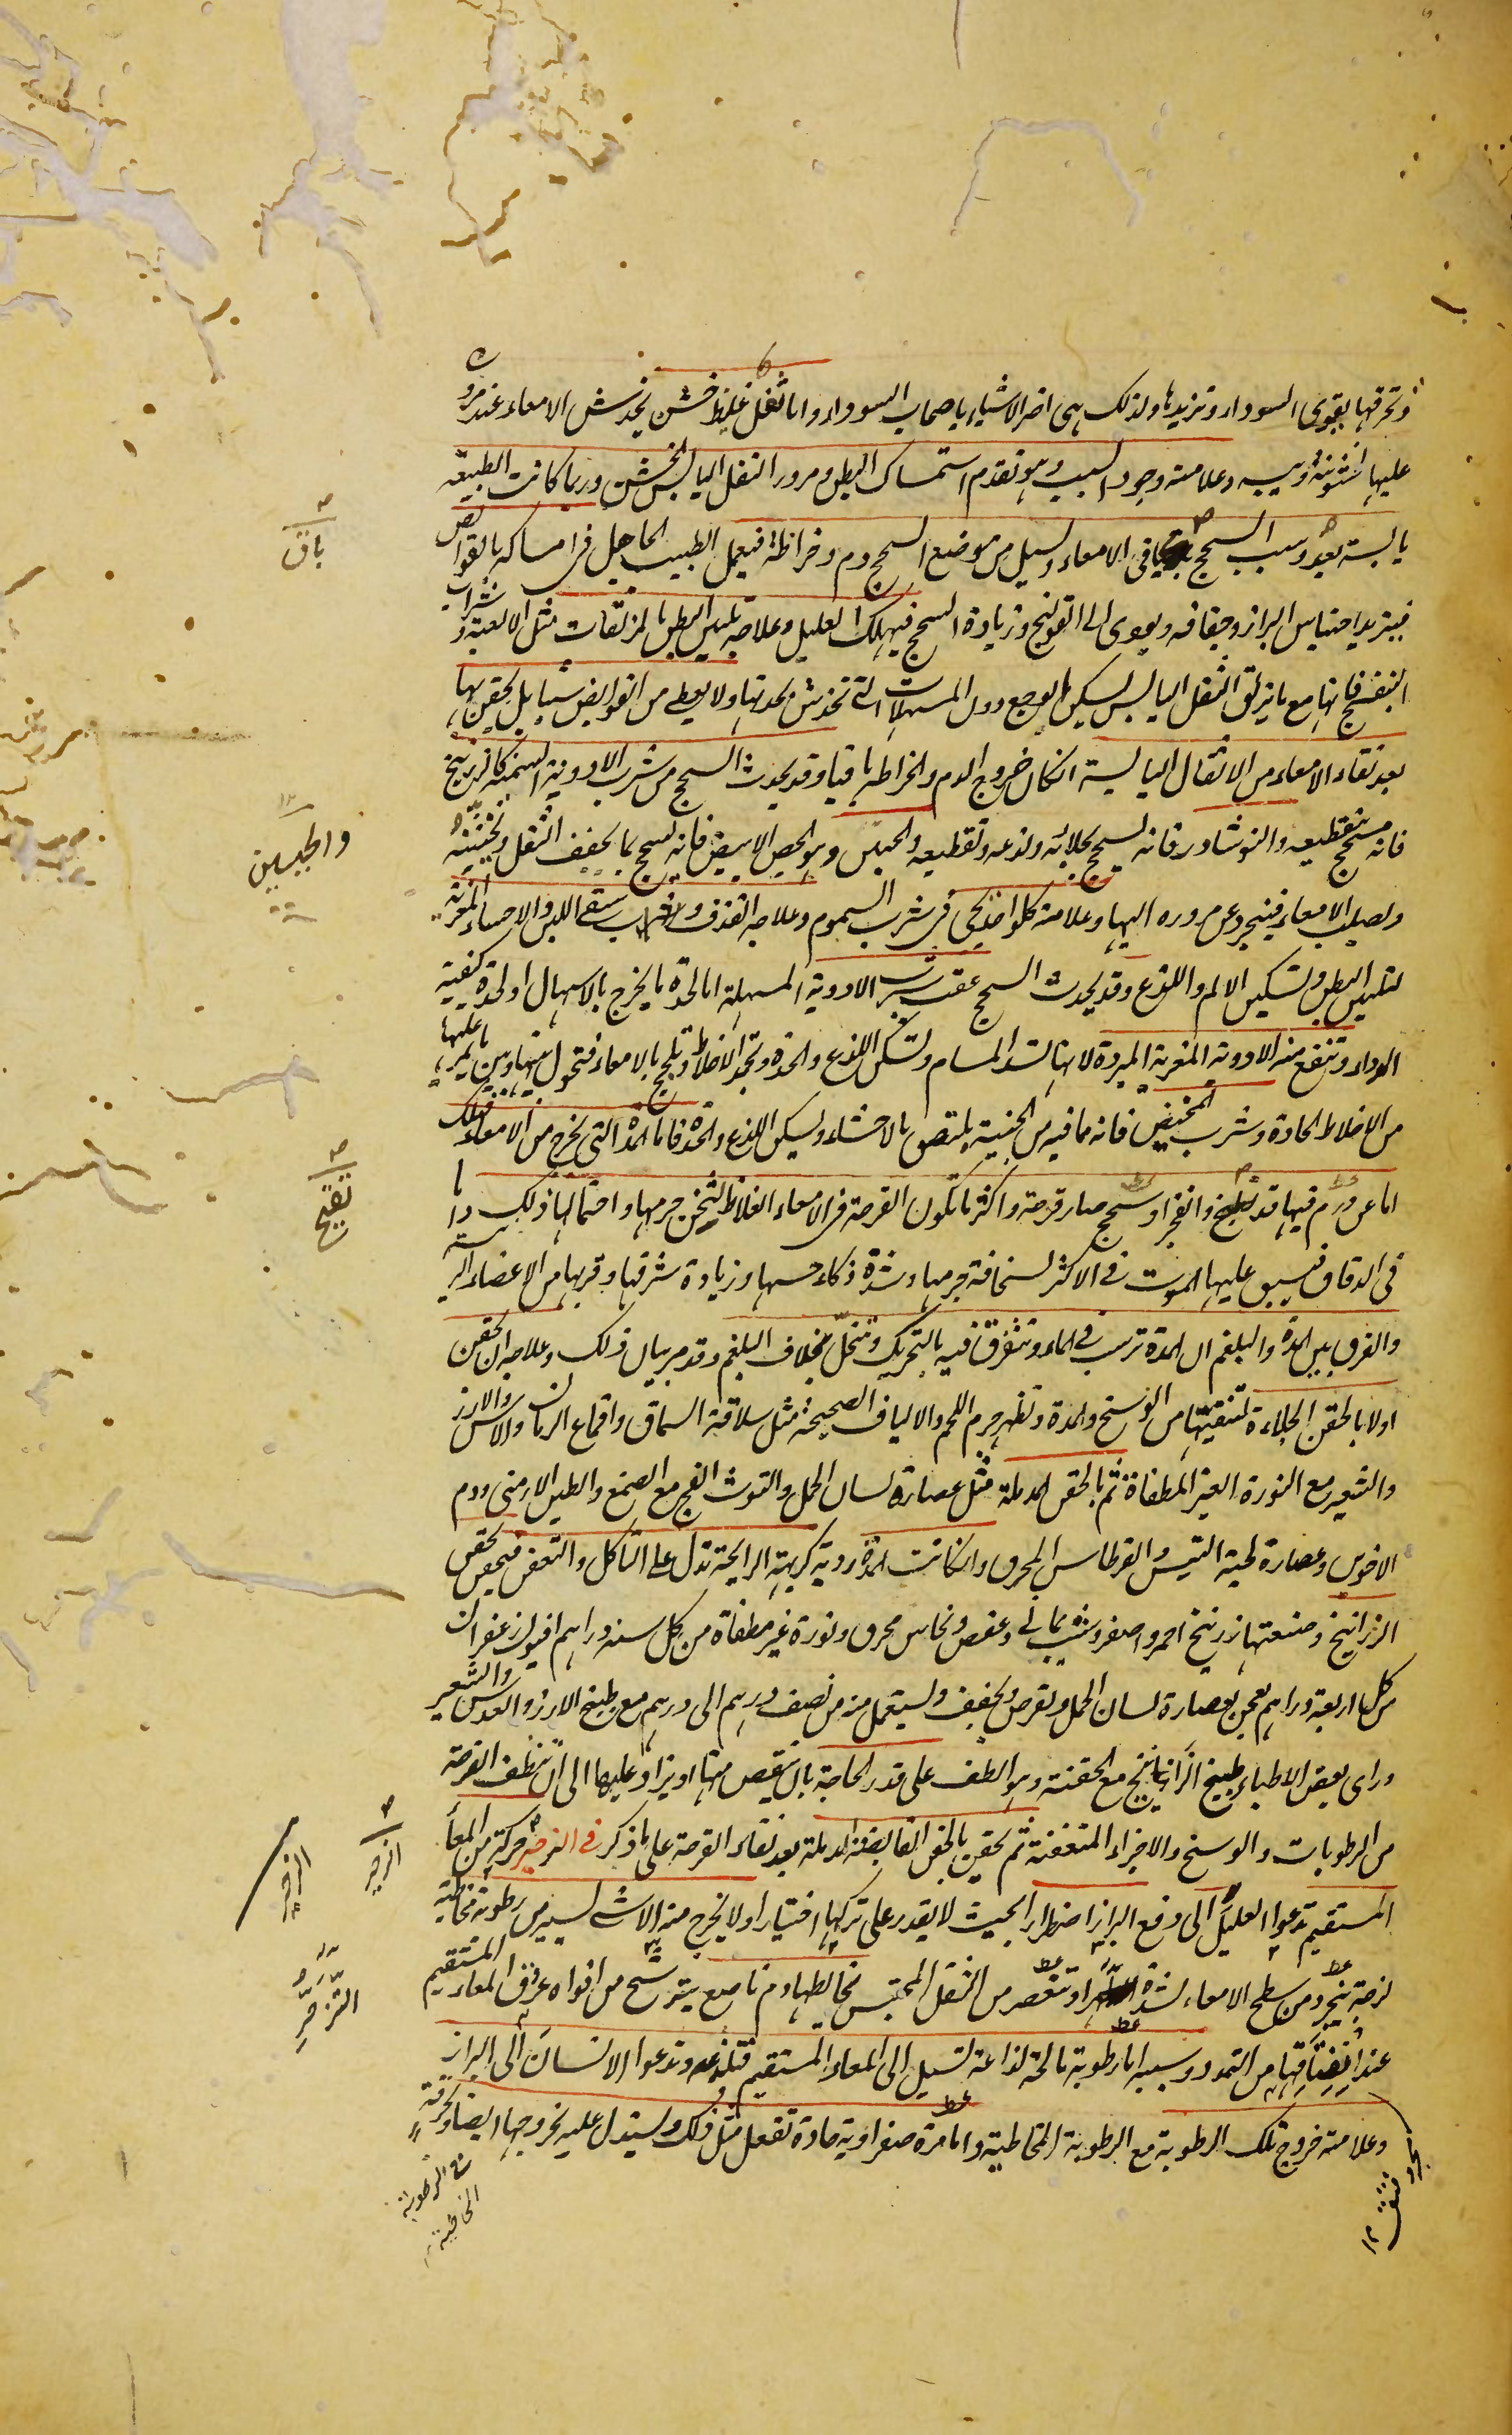 وتحرقها بقوى السوداء وتزيدها ولذلك هى اضر الاشياء باصحاب السوداء واما ثفل غليظ خشن يخدش الامعاء عند مروره
عليها لخشونته ويبسه وعلامته وجود السبب وهو تقدم استمساك البطن ومرور الثفل اليابس الخشن وربما كانت الطبيعة
يابسة بعد وسبب السحج باق فى الامعاء ويسيل من موضع السحج دم وخراطة فيعمل الطبيب الجاهل فى امساكه بالقوابض
فيزيد احتباس البراز وجفافه ويودى الى القولنج وزيادة السحج فيهلك العليل وعلاجه تليين البطن بالمزلقات مثل الالعبة وشراب
البنفسج فانها مع ما يزلق الثفل اليابس يسكن الوجع دون المسهلات التى تخدش بحدتها ولا يعطى من القوابض شيئا بل يحقن بها
بعد نقاء الامعاء من الاثقال اليابسة ان كان خروج الدم والخراطه باقيا وقد يحدث السحج من شرب الادوية السمية كالزرنيخ
فانه يسحج بتقطيعه والنوشادر فانه يسحج بجلائه ولذعه وتقطيعه والجبس وهو الجص الابيض فانه يسحج بما يجفف الثفل ويخشنه
ويصلب الامعاء فينجرد عن مروره اليها وعلامة كل واحد يجئ فى شرب السموم وعلاجه القذف وسقى اللبن والاحساء المغرية
لتليين البطن وتسكين الالم واللذع وقد يحدث السحج عقيب شرب الادوية المسهلة اما لحدة ما يخرج بالاسهال او لحدة كيفية
الدواء وتنفع منه الادوية المغرية المبردة لانها تسد المسام وتسكن اللذع والحدة وتجمد الاخلاط وتلحج بالامعاء فتحول بينها وبين ما يمر عليها
من الاخلاط الحادة وشرب المخيض فانه بما فيه من الجبنية يلتصق بالاحشاء ويسكن اللذع والحدة فاما المدة التى تخرج من الامعاء فتلك
اما عن ورم فيها قد تقيح وانفجر او سحج صار قرحة واكثر ما تكون القرحة فى الامعاء الغلاظ لثخن جرمها واحتمالها ذلك واما
فى الدقاق فيسبق عليها الموت فى الاكثر لسخافة جرمها وشدة ذكاء حسها وزيادة شرفها وقربها من الاعضاء الرئيسة
والفرق بين المدة والبلغم ان المدة ترسب فى الماء وتتفرق فيه بالتحريك وتنحل بخلاف البلغم وقد مر بيان ذلك وعلاجه ان يحقن
اولا بالحقن الجلاءة لتنقيتها من الوسخ والمدة وتظهر جرم اللحم والالياف الصحيحة مثل سلاقة السماق واقماع الرمان والاس والارز
والشعير مع النورة الغير المطفاة ثم بالحقن المدملة مثل عصارة لسان الحمل والتوث الفج مع الصمغ والطين الارمنى ودم
الاخوين وعصارة لحية التيس والقرطاس المحرق وان كانت المدة ردية كريهة الرايحة تدل على التاكل والتعفن فيحقن بحقن
الزرانيخ وصنعتها زرنيخ احمر واصفر وشب يمانى وعفص ونحاس محرق ونورة غير مطفاة من كل ستة دراهم افيون زعفران
من كل اربعة دراهم يعجن بعصارة لسان الحمل ويقرص ويجفف ويستعمل منه من نصف درهم الى درهم مع طبيخ الارز والعدس والشعير
وراى بعض الاطباء طبيخ الزرانيخ مع الحقنة وهو الطف على قدر الحاجة بان ينقص منها او يزاد عليها الى ان تنظف القرحة
من الرطوبات والوسخ والاجزاء المتعفنة ثم يحقن بالحقن القابضة المدملة بعد نقاء القرحة على ما ذكر فى الزحير حركة من المعا
المستقيم تدعوا العليل الى دفع البراز اضطرارا بحيث لا يقدر على تركها اختيارا ولا يخرج منه الا شئ يسير من رطوبة مخاطية
لزجة تنجرد من سطح الامعاء لشدة التزحر او تنعصر من الثفل المحتبس يخالطها دم ناصع يترشح من افواه عروق المعاء المستقيم
عند انفتاقها من التمدد وسببه اما رطوبة مالحة لذاعة تسيل الى المعاء المستقيم فتلذعه وتدعوا الانسان الى البراز
وعلامته خروج تلك الرطوبة مع الرطوبة المخاطية واما مرة صفراوية حادة تفعل مثل ذلك ويستدل عليه بخروجها ايضا وحرقة
مع الرطوبة
المخاطية
باق
والجبسين
تقيح
الزحير
الزحير
التزحر